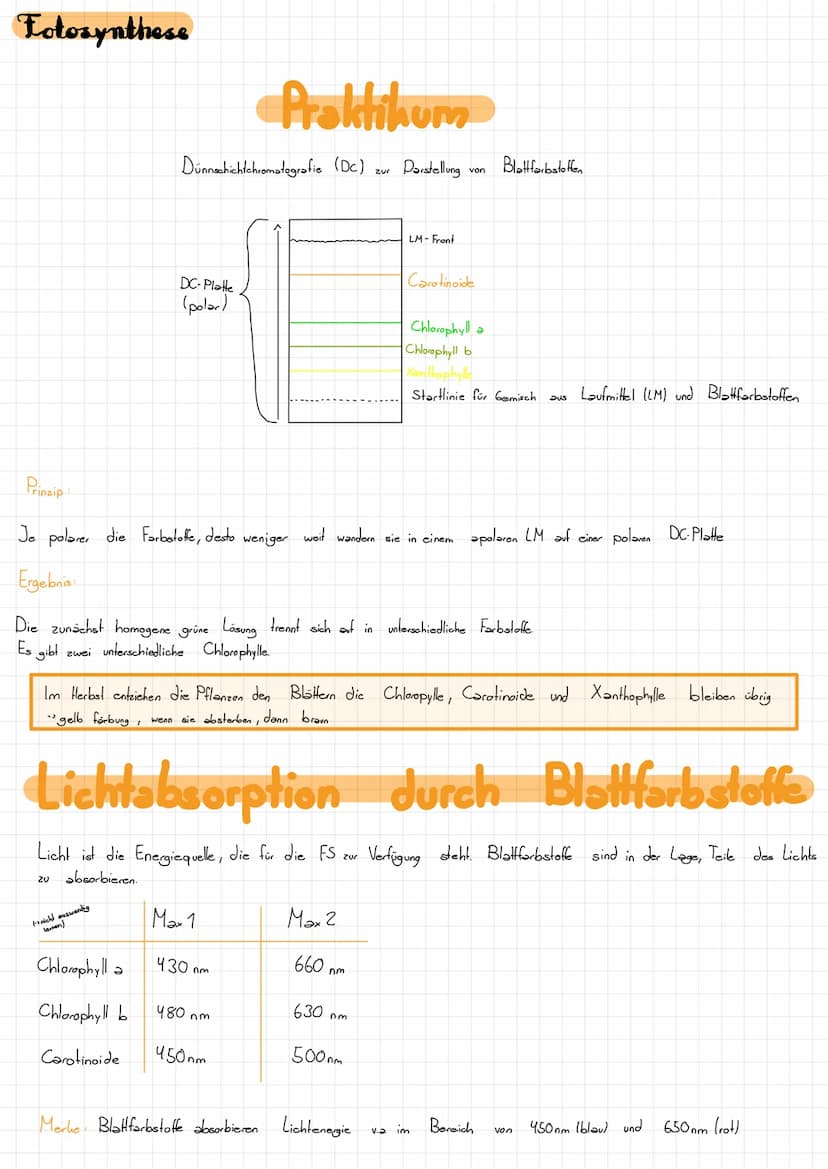 Fotosynthese
Praktikum
Dünnschichtchromatografie (DC) zur Darstellung von Blattfarbstoffen
LM-Front
Carotinoide
DC-Platte
(polar)
Chlorophyll a
Chlorophyll b
Xanthophylle
Startlinie für Gemisch aus Laufmittel (LM) und Blattfarbstoffen
Prinzip:
Je polarer die Farbstoffe, desto weniger weit wandern sie in einem apolaren LM auf einer polaren DC-Platte
Ergebnis:
Die zunächst homogene grüne Lösung trennt sich auf in unterschiedliche Farbstoffe.
Es gibt zwei unterschiedliche Chlorophylle.
Im Herbst entziehen die Pflanzen den Blättern die Chloropylle, Carotinoide und Xanthophylle bleiben übrig
→ gelb färbung, wenn sie absterben, dann braun
Lichtabsorption durch Blattfarbstoffe
Licht ist die Energiequelle, die für die FS zur Verfügung steht. Blattfarbstoffe sind in der Lage, Teile des Lichts
zu absorbieren.
(→ nicht auswendig
lernen)
Max 1 Max 2
Chlorophyll a 430 nm 660 nm
Chlorophyll b 480 nm 630 nm
Carotinoide 450nm 500nm
Merke: Blattfarbstoffe absorbieren Lichtenergie v.a im Bereich von 450nm (blau) und 650nm (rot)